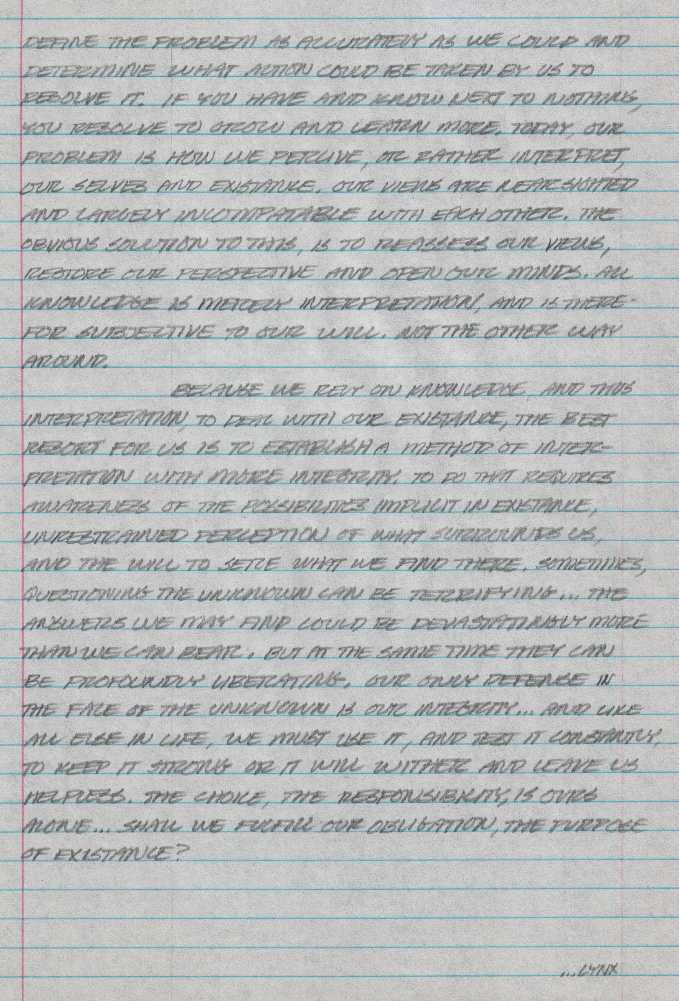 DEFINE THE PROBLEM AS ACCURATELY AS WE COULD AND
DETERMINE WHAT ACTION COULD BE TAKEN BY US TO
RESOLVE IT. IF YOU HAVE AND KNOW NEXT TO NOTHING,
YOU RESOLVE TO GROW AND LEARN MORE. TODAY, OUR
PROBLEM IS HOW WE PERCIVE, OR RATHER INTERPRET,
OUR SELVES AND EXISTANCE. OUR VIEWS ARE NEARSIGHTED
AND LARGELY INCOMPATABLE WITH EACH OTHER. THE
OBVIOUS SOLUTION TO THIS, IS TO REASSESS OUR VIEWS,
RESTORE OUR PERSPECTIVE AND OPEN OUR MINDS. ALL
KNOWLEDGE IS MERELY INTERPRETATION, AND IS THERE-
FOR SUBJECTIVE TO OUR WILL. NOT THE OTHER WAY
AROUND.
BECAUSE WE RELY ON KNOWLEDGE, AND THUS
INTERPRETATION, TO DEAL WITH OUR EXISTANCE, THE BEST
RESORT FOR US IS TO ESTABLISH A METHOD OF INTER-
PRETATION WITH MORE INTEGRITY. TO DO THAT REQUIRES
AWARENESS OF THE POSSIBILITIES IMPLICIT IN EXISTANCE,
UNRESTRAINED PERCEPTION OF WHAT SURROUNDS US,
AND THE WILL TO SETTLE WHAT WE FIND THERE. SOMETIMES,
QUESTIONING THE UNKNOWN CAN BE TERRIFYING... THE
ANSWERS WE MAY FIND COULD BE DEVASTATINGLY MORE
THAN WE CAN BEAR. BUT AT THE SAME TIME THEY CAN
BE PROFOUNDLY LIBERATING. OUR ONLY DEFENSE IN
THE FACE OF THE UNKNOWN IS OUR INTEGRITY... AND LIKE
ALL ELSE IN LIFE, WE MUST USE IT, AND TEST IT CONSTANTLY,
TO KEEP IT STRONG OR IT WILL WITHER AND LEAVE US
HELPLESS. THE CHOICE, THE RESPONSIBILITY, IS OURS
ALONE... SHALL WE FULFILL OUR OBLIGATION, THE PURPOSE
OF EXISTANCE?
...LYNX